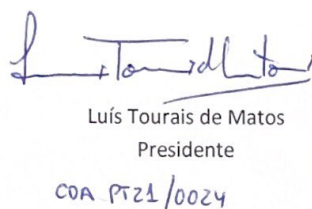 Luís Tourais de Matos
Presidente
COA PT21/0024